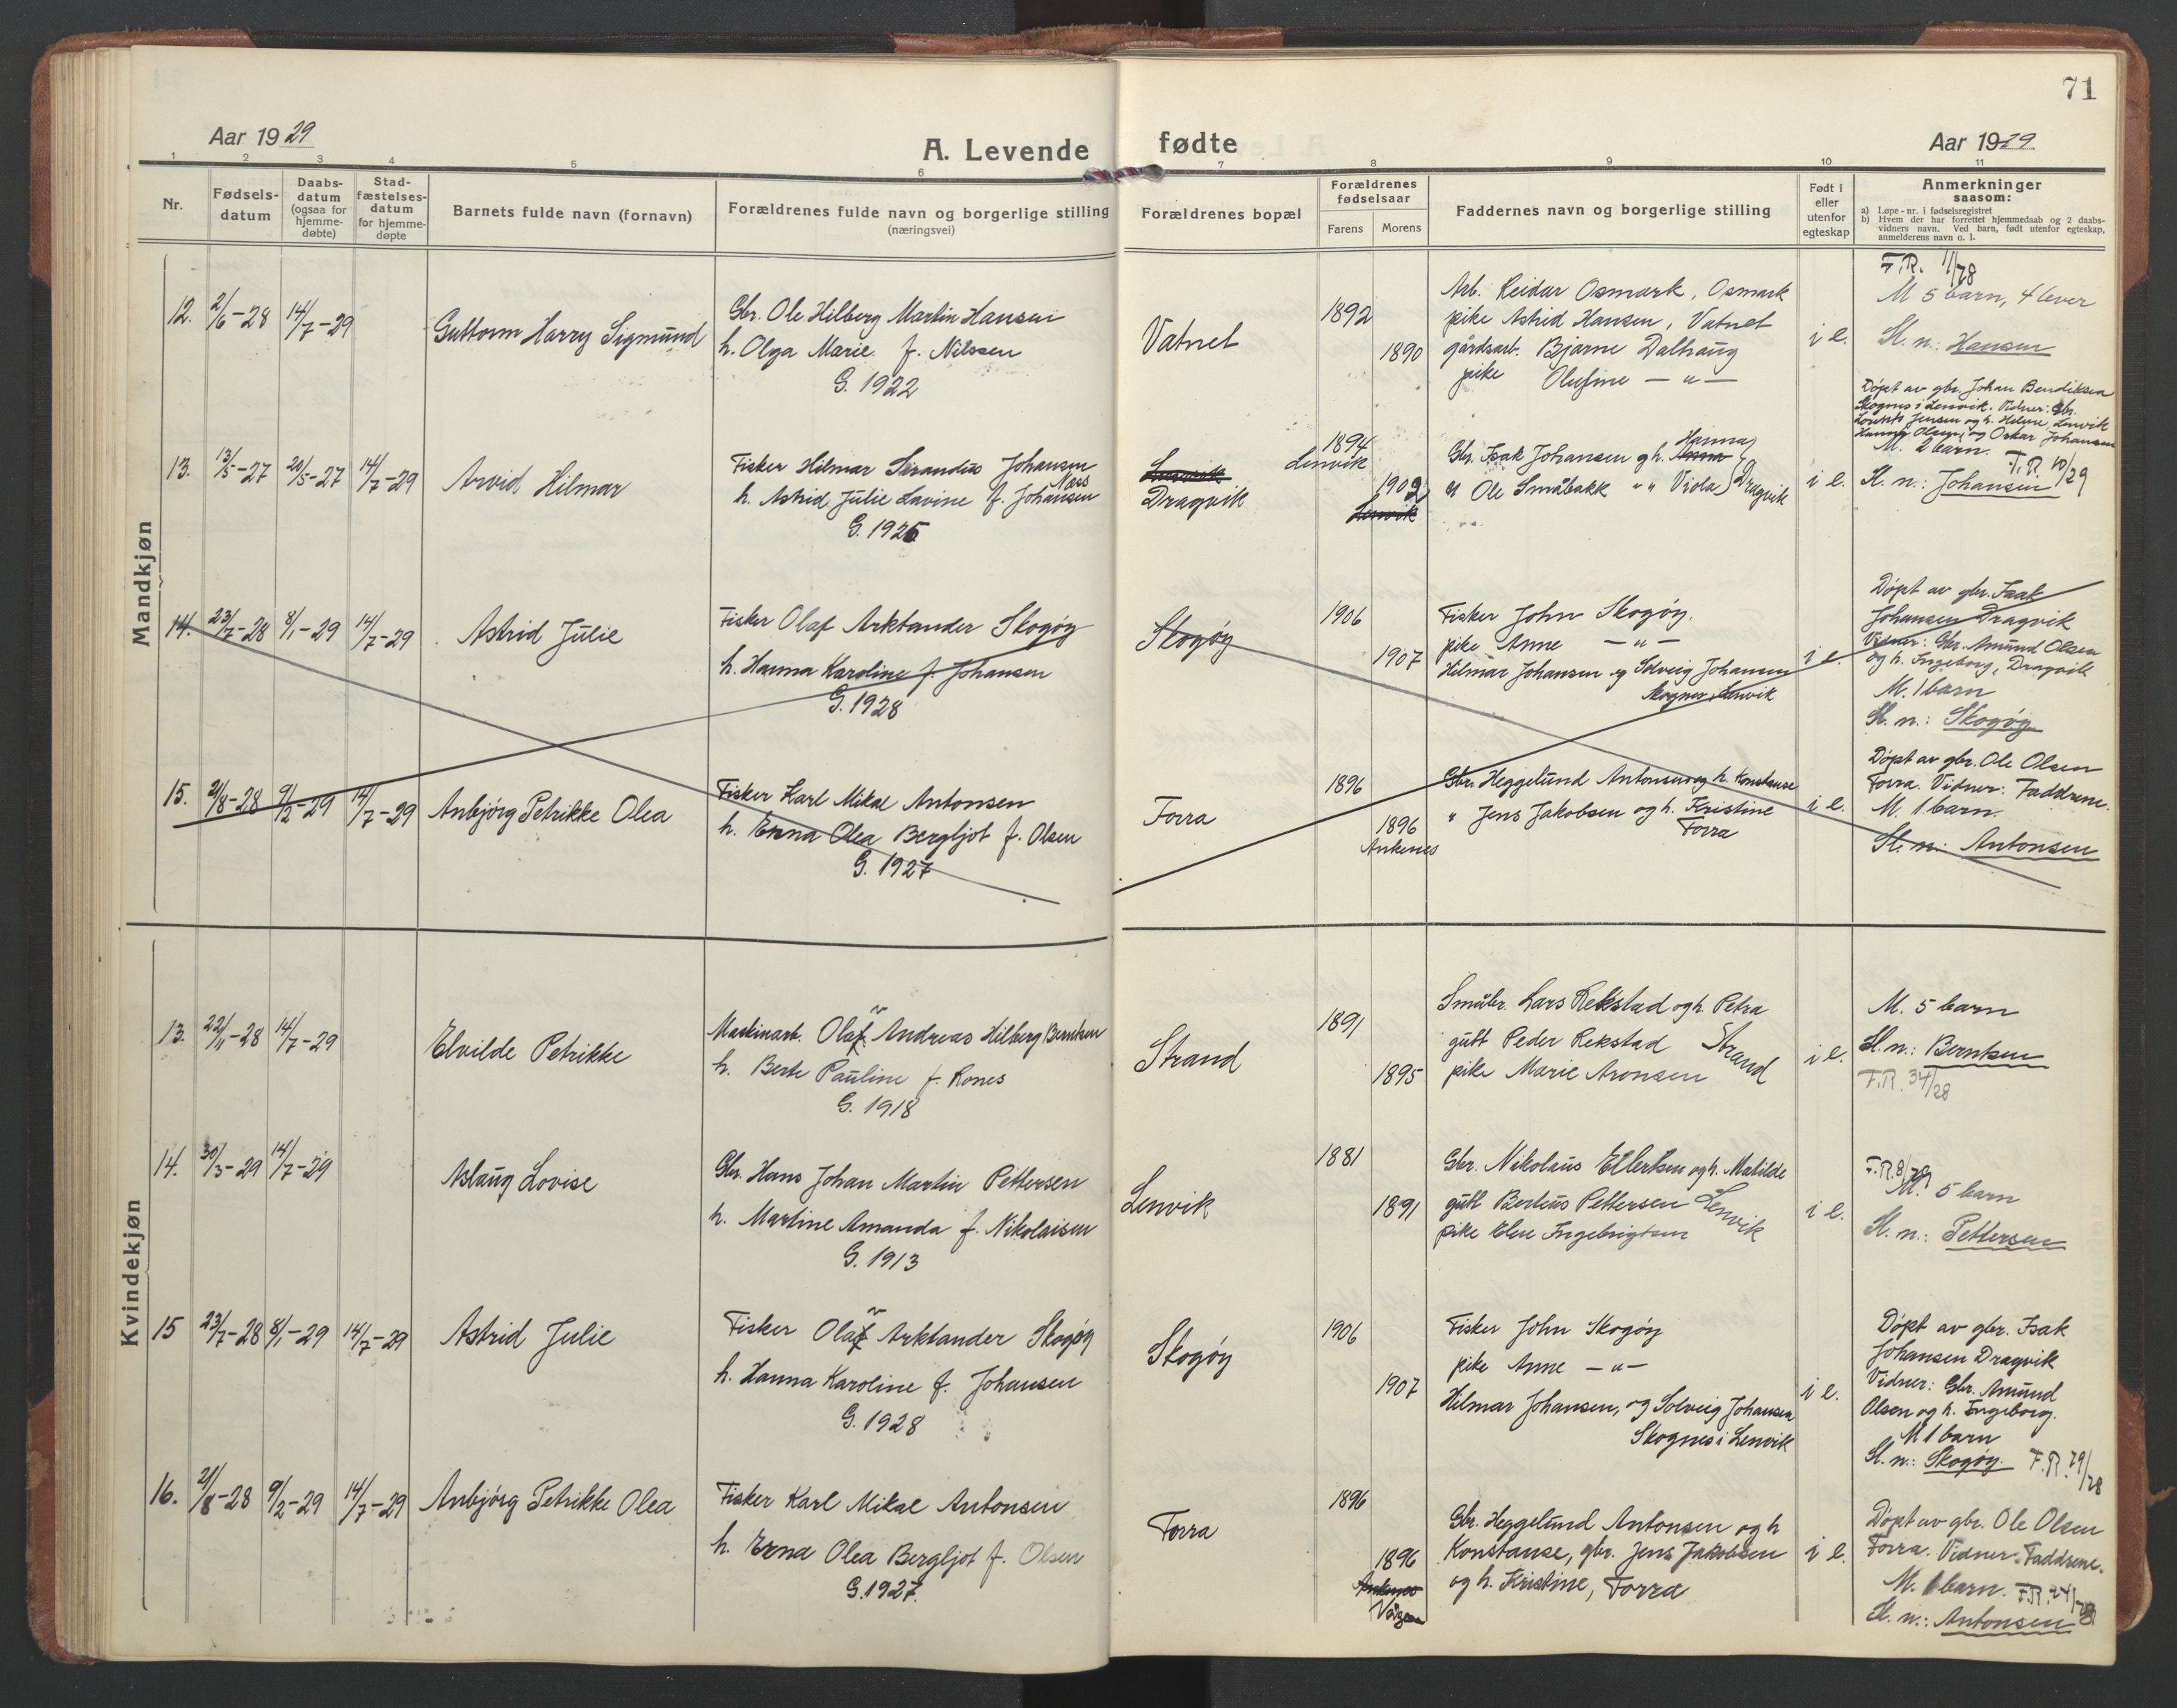 71
Aar 1929
A. Levende fødte
Aar 1929
1 2 3 4 5 6 7 8 9 10 11
Nr.
Fødsels-
datum
Daabs-
datum
(ogsaa for
hjemme-
døbte)
Stad-
fæstelses-
datum
for hjemme-
døpte
Barnets fulde navn (fornavn)
Forældrenes fulde navn og borgerlige stilling
(næringsvei)
Forældrenes bopæl
Forældrenes
fødselsaar
Farens
Morens
Faddernes navn og borgerlige stilling
Født i
eller
utenfor
egteskap
Anmerkninger
saasom:
a) Løpe-nr. i fødselsregistret
b) Hvem der har forrettet hjemmedaab og 2 daabs-
vidners navn. Ved barn, født utenfor egteskap,
anmelderens navn o. l.
Mandkjøn
12. 2/6-28 14/7-29
Guttorm Harry Sigmund
Gbr. Ole Hilberg Martin Hansen
h. Olga Marie f. Nilssen
G. 1922
Vatnet
1892
1890
Arb. Reidar Osmark, Osmark
pike Astrid Hansen, Vatnet
gårdsarb. Bjarne Dalhaug
pike Olufine — " —
i e.
F.R. 11/28
M 5 barn, 4 lever
Sl. n.: Hansen
13. 13/5-27 20/5-27 14/7-29
Arvid Hilmar
Fisker Hilmar Serandius Johansen
Næss
h. Astrid Julie Lavine f. Johansen
G. 1926
Lenvik
Dragvik
1894
Lenvik
1902
Lenvik
Hanna
Gbr. Isak Johansen og h. Anna
" Ole Småbakk " " Viola
Dragvik
i e.
Døpt av gbr. Johan Bendiksen
Skognes i Lenvik. Vidner: Gbr.
Lorents Jensen og h. Helene, Lenvik
Hanna Olsen, og Oskar Johansen
M. 2 barn.
F.R. 10/29
Sl. n.: Johansen
14. 23/7-28 8/1-29 14/7-29
Astrid Julie
Fisker Olaf Arktander Skogøy
h. Hanna Karoline f. Johansen
G. 1928
Skogøy
1906
1907
Fisker John Skogøy.
pike Anne — " —
Hilmar Johansen og Solveig Johansen
Skognes i Lenvik
i e.
Døpt av gbr. Isak
Johansen Dragvik
Vidner: Gbr. Amund Olsen
og h. Ingeborg, Dragvik
M. 1 barn
Sl. n.: Skogøy
15. 21/8-28 9/2-29 14/7-29
Anbjørg Petrikke Olea
Fisker Karl Mikal Antonsen
h. Erna Olea Bergljot f. Olsen
G. 1927
Forra
1896
1896
Ankenes
Gbr. Heggelund Antonsen og h. Konstanse
" Jens Jakobsen og h. Kristine
Forra
i e.
Døpt av gbr. Ole Olsen
Forra. Vidner: Faddrene.
M. 1 barn.
Sl. n: Antonsen
Kvindekjøn
13. 22/11-28 14/7-29
Elvilde Petrikke
Maskinarb. Olaf Andreas Hilberg Berntsen
h. Berte Pauline f. Rones
G. 1918
Strand
1891
1895
Småbr. Lars Rekstad og h. Petra
gutt Peder Rekstad
pike Marie Aronsen
Strand
i e.
M. 5 barn
Sl. n.: Berntsen
F.R. 34/28
14. 30/3-29 14/7-29
Aslaug Lovise
Gbr. Hans Johan Martin Pettersen
h. Martine Amanda f. Nikolaisen
G. 1913
Lenvik
1881
1891
Gbr. Nikolaus Ellertsen og h. Matilde
gutt Bertius Pettersen
pike Elen Ingebrigtsen
Lenvik
i e.
F.R. 8/29
M. 5 barn
Sl. n.: Pettersen
15 23/7-28 8/1-29 14/7-29
Astrid Julie
Fisker Olaf Arktander Skogøy
h. Hanna Karoline f. Johansen
G. 1928
Skogøy
1906
1907
Fisker John Skogøy
pike Anne — " —
Hilmar Johansen, og Solveig Johansen
Skognes i Lenvik
i e.
Døpt av gbr. Isak
Johansen Dragvik
Vidner: Gbr. Amund
Olsen og h. Ingeborg.
M 1 barn
Sl. n.: Skogøy. F.R. 29/28
16. 21/8-28 9/2-29 14/7-29
Anbjørg Petrikke Olea
Fisker Karl Mikal Antonsen
h. Erna Olea Bergljot f. Olsen
G. 1927.
Forra
1896
1896
Ankenes
Gbr. Heggelund Antonsen og h
Konstanse, gbr. Jens Jakobsen
og h. Kristine, Forra
i e.
Døpt av gbr. Ole Olsen
Forra. Vidner: Faddrene.
M. 1 barn. F.R. 24/28
Sl. n.: Antonsen